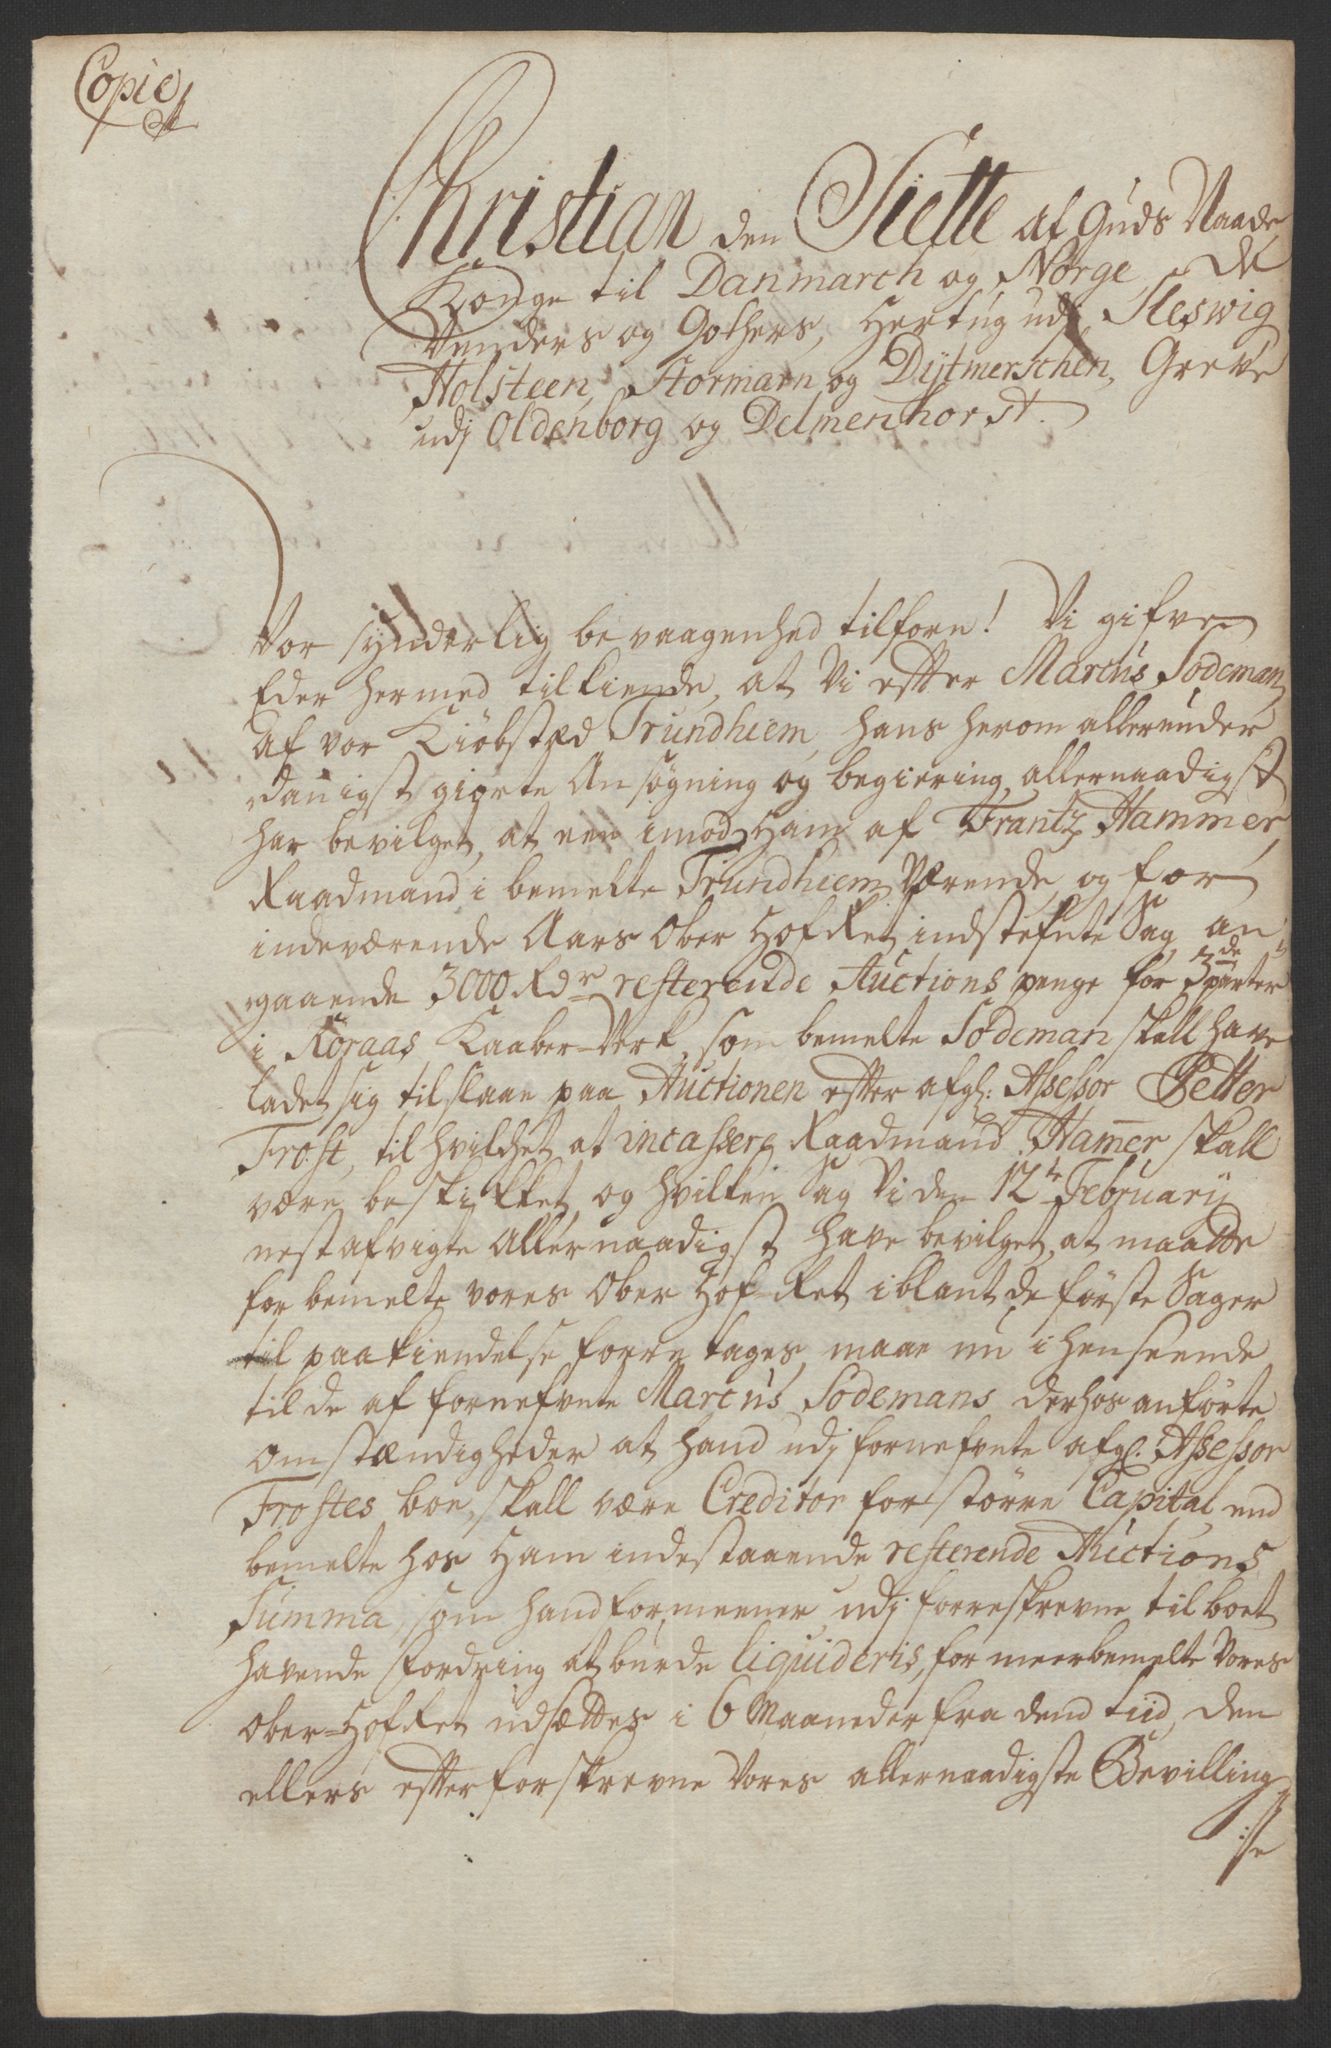 Copie
Christian den Siette af Guds Naade
Konge til Danmarch og Norge, de
Venders og Gothers, Hertug udj Sleswig
Holsteen, Stormarn og Dijtmerschen, Greve
udj Oldenborg og Delmenhorst.
Vor synderlig bevaagenhed tilforn! Vi gifve
Eder hermed tilkiende, at Vi efter Marcus Sodeman
af vor Kiöbstæd Trundhiem, hans herom allerunder
danigst giorte Ansøgning og begiering, allernaadigst
har bevilget, at een imod Ham af Frantz Hammer
Raadmand i bemelte Trundhiem Værende, og for
indeværende Aars Ober HofRet indstefnte Sag, an¬
gaaende 3000 Rdr resterende Auctions penge for 3de parter
i Röraas Kaaber-Verk, som bemelte Sodeman skall have
ladet sig tilslaae paa Auctionen efter afgl: Assessor Petter
Frost, til hvilchet at incassere Raadmand Ham̅er skall
være beskikket, og hvilken Sag Vi den 12te Februarij
nestafvigte Allernaadigst have bevilget, at maatte
for bemelte vores Ober Hof-Ret iblant de förste Sager
til paakiendelse foretages, maae nu i henseende
til de af fornefnte Marcus Sodemans derhos anförte
omstændigheder at hand udj fornefnte afgl: Assessor
Frostes boe, skall være Creditor for större Capital, end
bemelte hos Ham indestaaende resterende Auctions
Summa, som hand formeener udj forreskrevne til boet
havende fordring at burde liquideris, for meerbemelte Vores
Ober-HofRet udsættes i 6 Maaneder fra dend tiid, den
ellers efter forskrevne Vores allernaadigste Bevilling